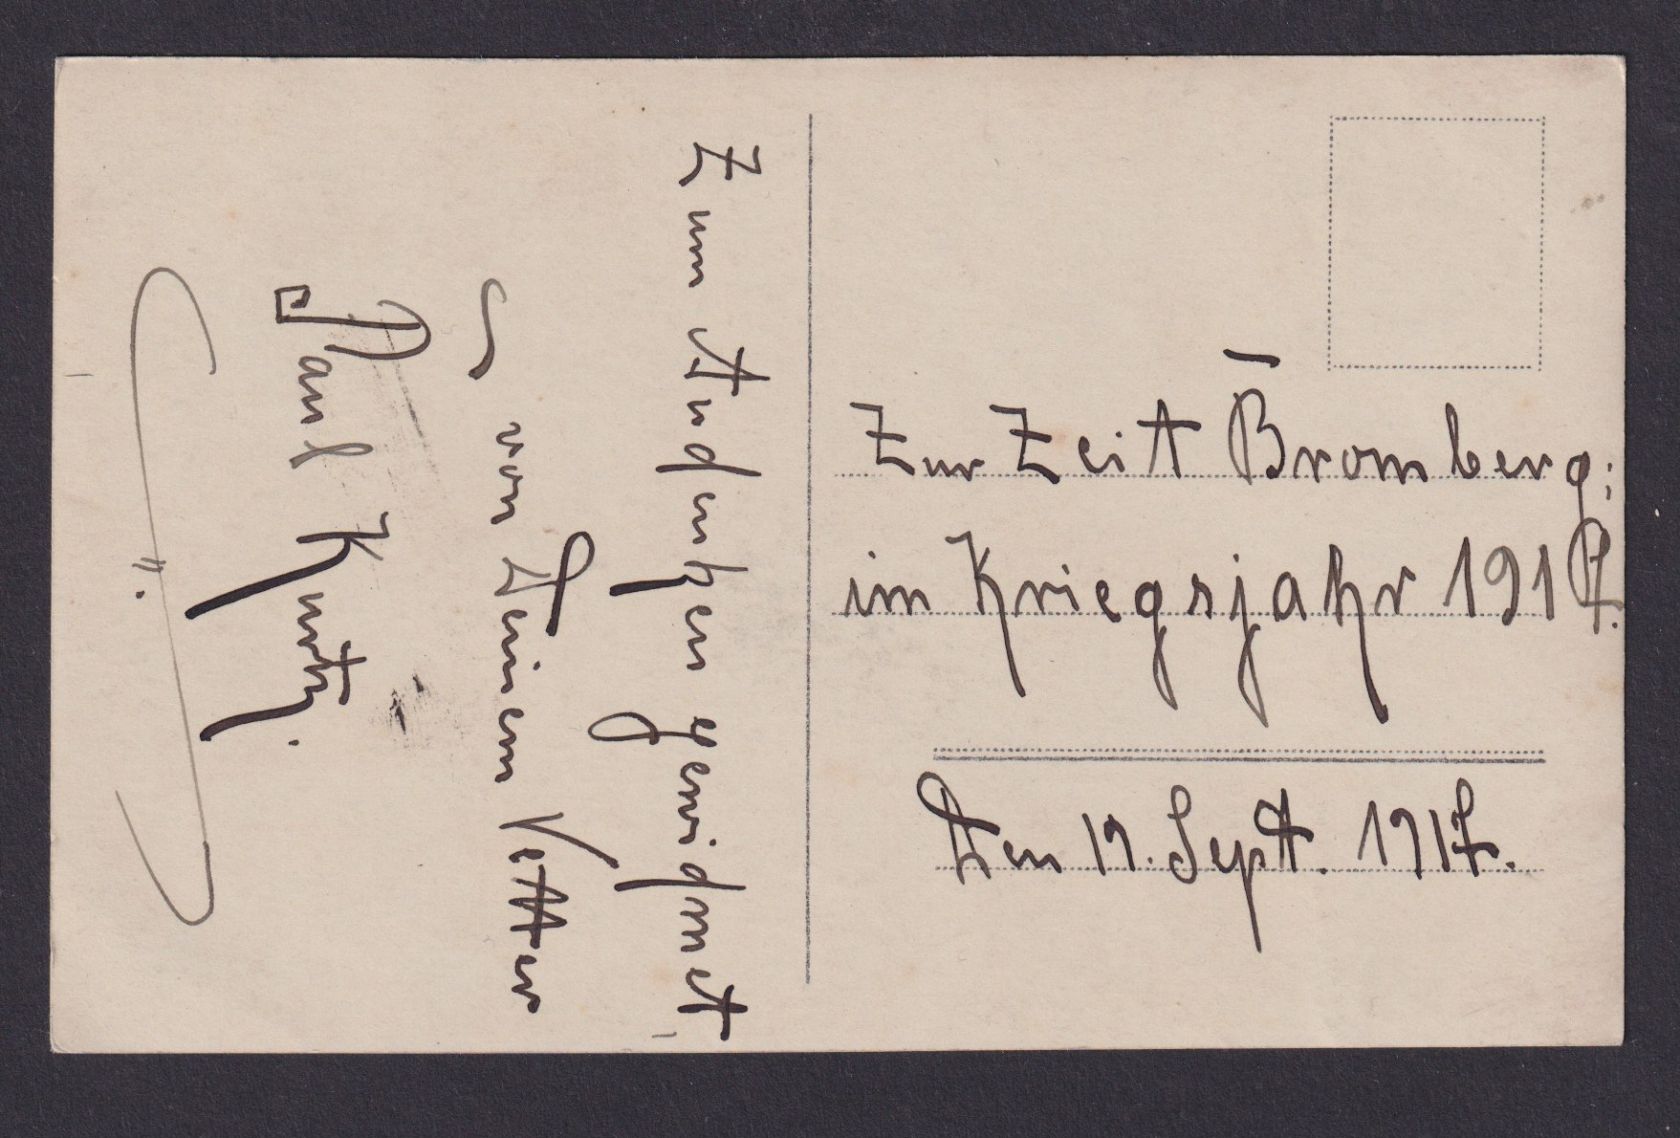 Zum Andenken gewidmet
von Deinem Vetter
Paul Kurtz.
Zur Zeit Bromberg:
im Kriegsjahr 1917.
Den 19. Sept. 1917.